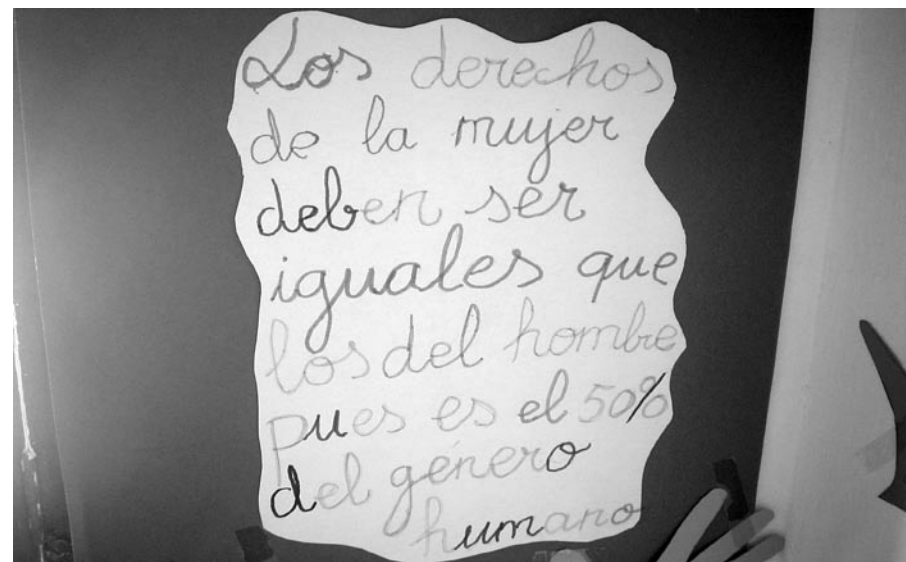 Los derechos
de la mujer
deben ser
iguales que
los del hombre
pues es el 50%
del género
humano